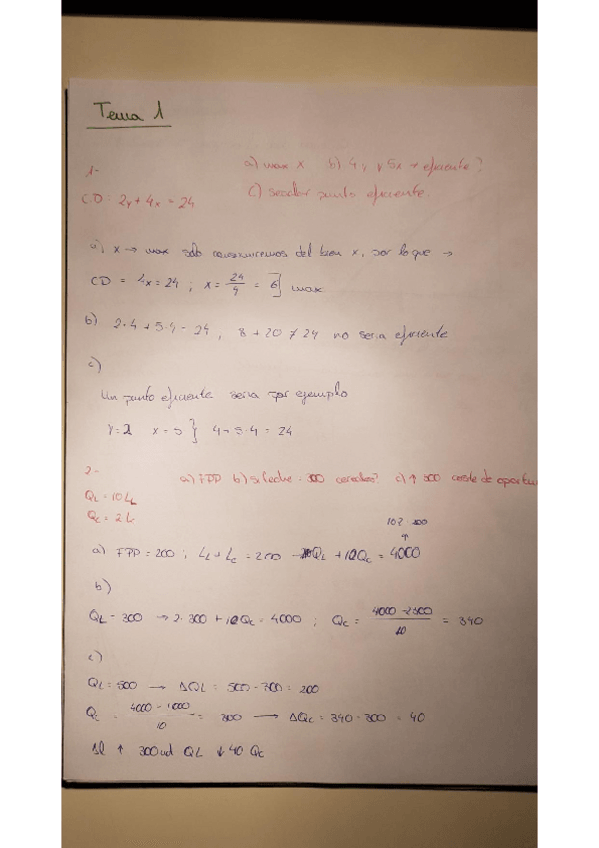 Tema 1
1-
a) max x b) 4y y 5x → eficiente?
CD: 2y + 4x = 24
c) señalar punto eficiente.
a) x → max solo consumiremos del bien x, por lo que →
CD = 4x = 24 ; x = 24/4 = 6] max
b) 2·4 + 5·4 = 24, 8 + 20 ≠ 24 no seria eficiente
c)
Un punto eficiente seria por ejemplo
Y = 2 x = 5 } 4 + 5·4 = 24
2-
a) FPP b) si leche = 300 cereales? c) ↑ 500 coste de oportu
QL = 10 LL
Qc = 2 Lc
a) FPP = 200 ; LL + Lc = 200 QL + 10Qc = 4000
b)
QL = 300 → 2·300 + 10Qc = 4000 ; Qc = /10 = 340
c)
QL = 500 → ΔQL = 500 - 300 = 200
Qc = 4000 - 1000/10 = 300 → ΔQc = 340 - 300 = 40
↑ 300ud QL ↓ 40 Qc